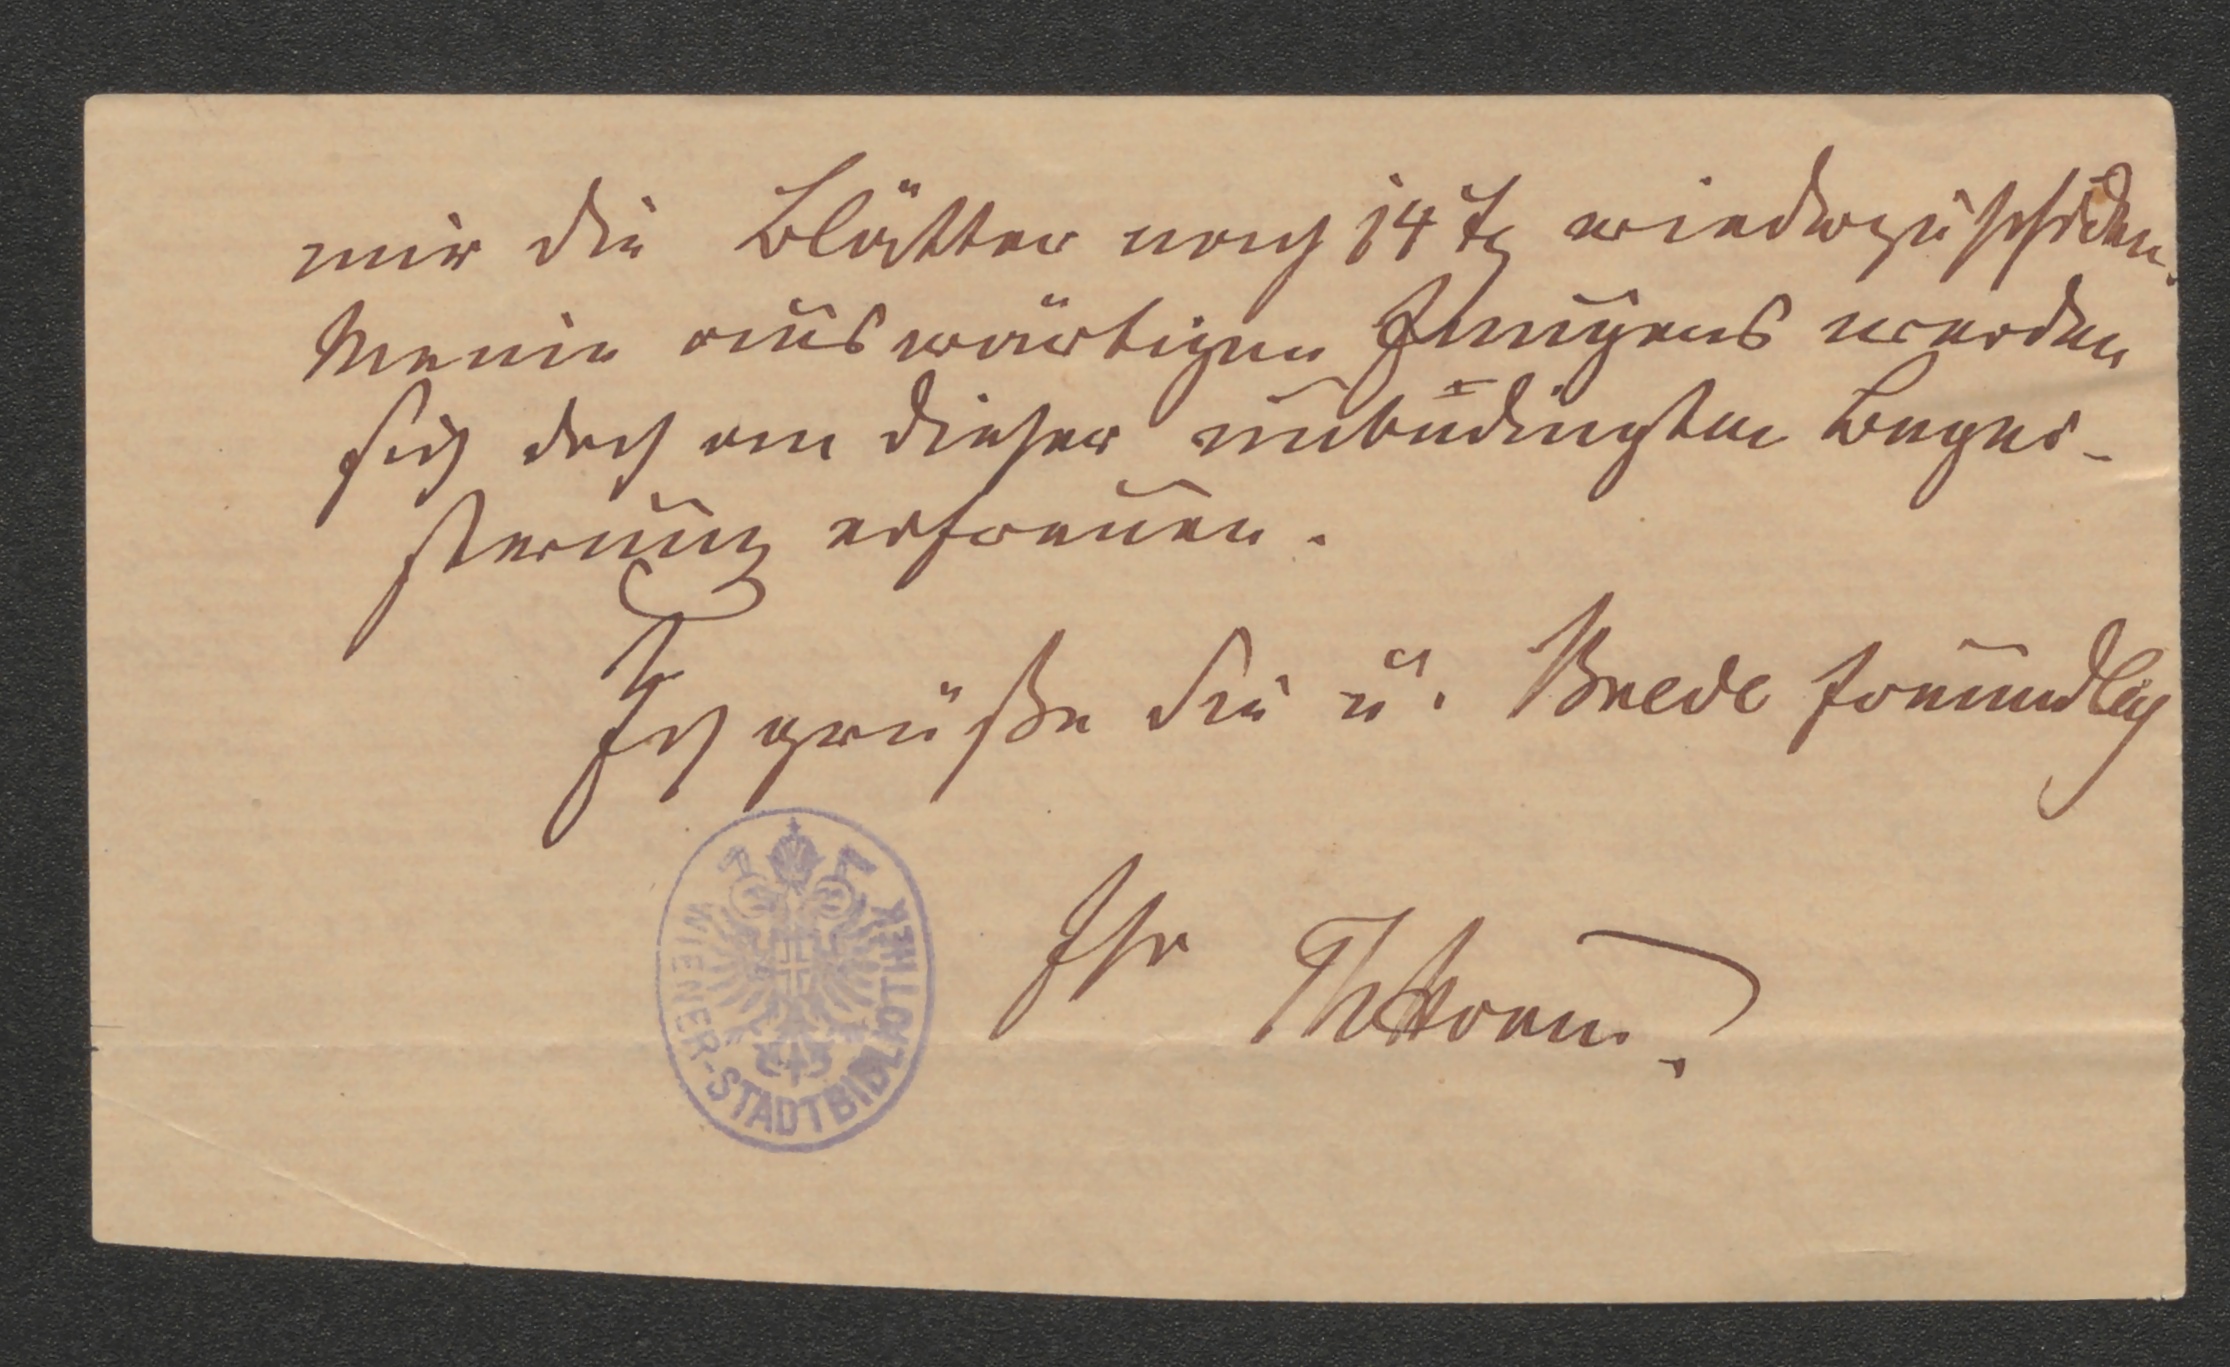 mir die Blätter nach 14 Tg wiederzuschicken.
Meine auswärtigen Jungens werden
sich doch an dieser unbedingten Begei-
sterung erfreuen.
Ich grüße Sie u. Brede freundlich
Ihr
WIENER-STADTBIBLIOTHEK